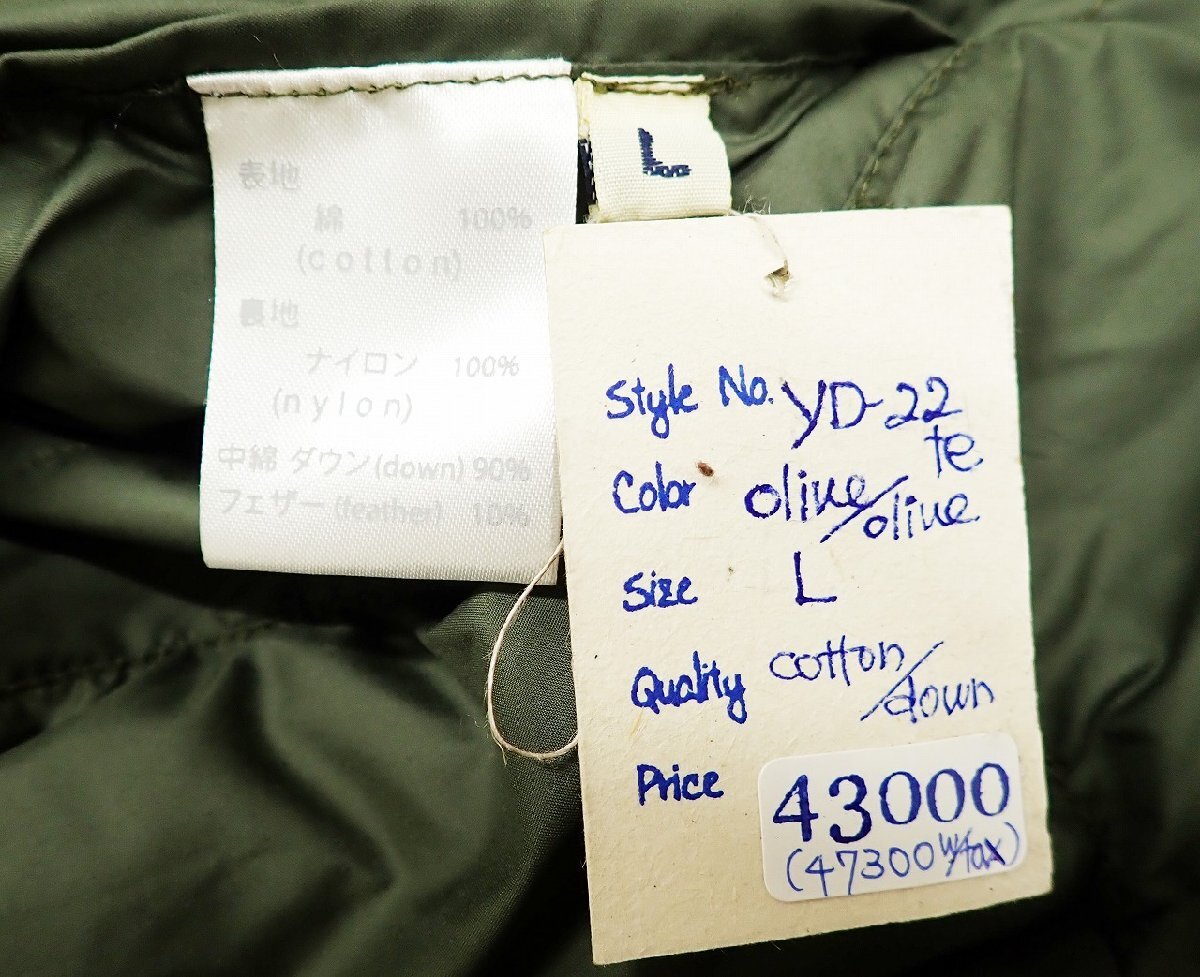 表地
綿 100%
(cotton)
裏地
ナイロン 100%
(nylon)
中綿 ダウン(down) 90%
フェザー(feather) 10%
L
Style No. YD-22
te
Color olive/olive
Size L
Quality cotton/down
Price 43000
(47300 w/tax)